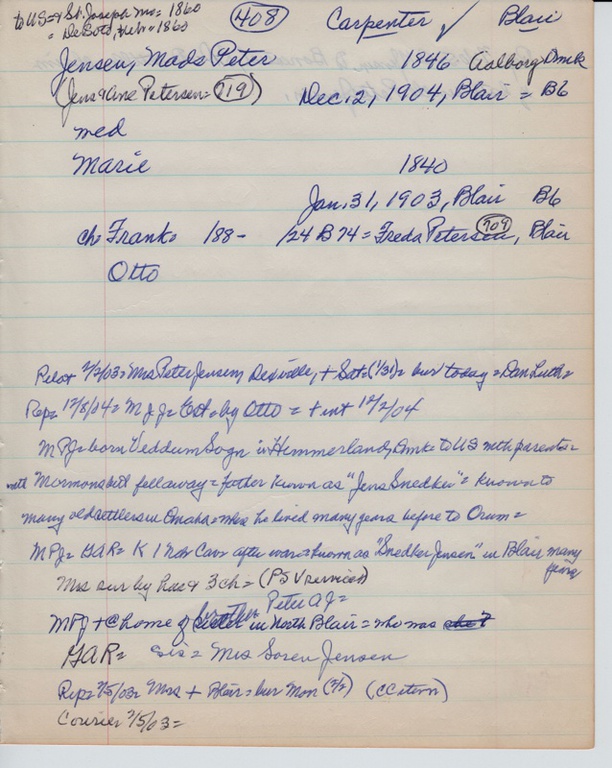 to US= & St. Joseph Mo= 1860
= DeSoto, Neb= 1860
408
Carpenter ✓ Blair
Jensen, Mads Peter 1846 Aalborg Dmk
(Jens & Ane Petersen= 719) Dec. 2, 1904, Blair = B6
med
Marie 1840
Jan. 31, 1903, Blair B6
ch= Frank= 188- /24 B 74 = Freda Petersen 709, Blair
Otto
Pilot 2/2/03= Mrs Peter Jensen, Dexville, + Sat= (1/31)= bur today = Dan Luth=
Rep= 12/8/04= M P J= Est= by Otto = + int 12/2/04
MPJ= born Veddum Sogn in Himmerland, Dmk= to US with parents=
with Mormons but fell away= father known as "Jens Snedker"= known to
many old settlers in Omaha= where he lived many years before to Orum=
MPJ= GAR= K 1 Neb Cav= after war= known as "Snedker Jensen" in Blair many years
Mrs sur by hus & 3 ch= (PS V services)
MPJ + @ home of brother Peter A J= in North Blair= who was
GAR= sis= Mrs Soren Jensen
Rep= 2/5/03= Mrs + Blair= bur Mon (2/2) (CC item)
Courier 2/5/03=